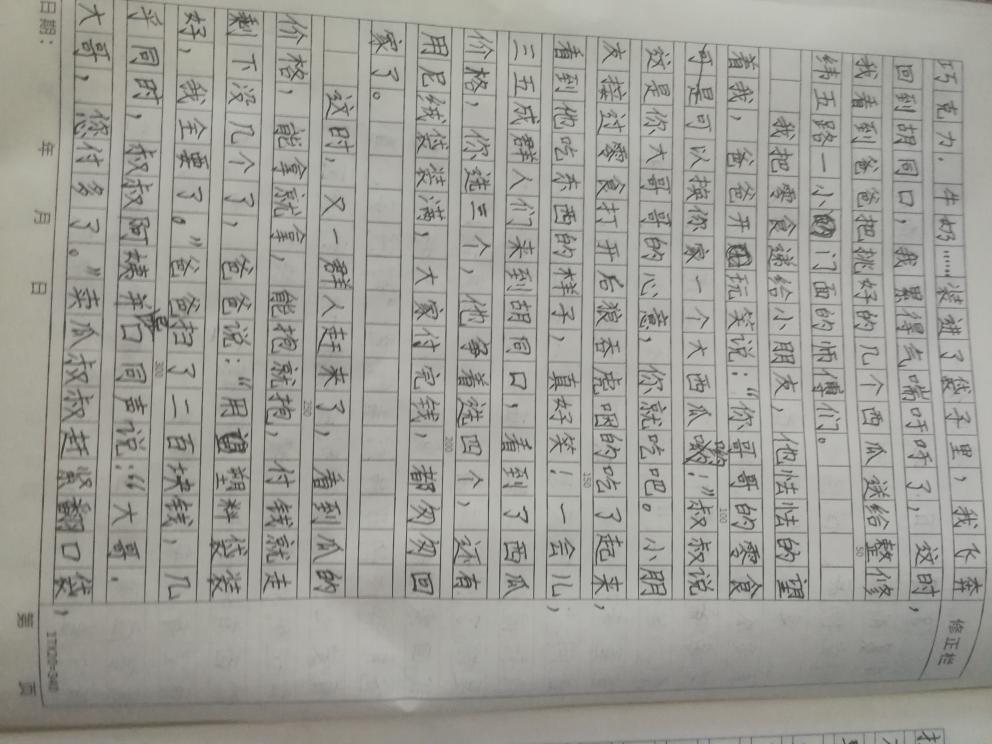 修正栏
巧克力,牛奶……装进了袋子里,我飞奔
回到胡同口,我累得气喘吁吁了,这时,
我看到爸爸把挑好的几个西瓜送给整修
纬五路一小门面的师傅们。
我把零食递给小朋友,他怯怯的望
着我,爸爸开玩笑说:“你哥哥的零食
可是可以换你家一个大西瓜哟!”叔叔说
这是你大哥哥的心意,你就吃吧。小朋
友接过零食打开后狼吞虎咽的吃了起来,
看到他吃东西的样子,真好笑!一会儿,
三五成群人们来到胡同口,看到了西瓜
价格,你选三个,他争着选四个,还有
用尼绒袋装满,大家付完钱,都匆匆回
家了。
这时,又一群人赶来了,看到瓜的
价格,能拿就拿,能抱就抱,付钱就走
剩下没几个了,爸爸说:“用塑料袋装
好,我全要了。”爸爸扫了二百块钱,几
乎同时,叔叔阿姨异口同声说:“大哥.
大哥,您付多了。”卖瓜叔叔赶紧翻口袋,
50
100
150
200
250
300
17X20=340
日期: 年 月 日
第 页